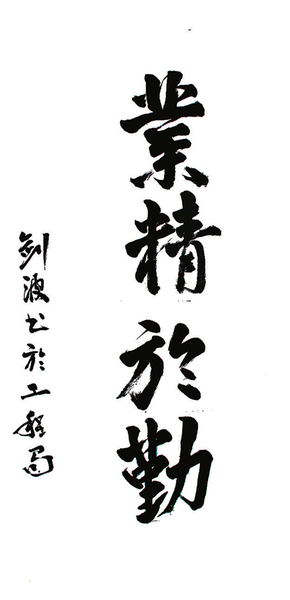 業精於勤
剑波书於工程局